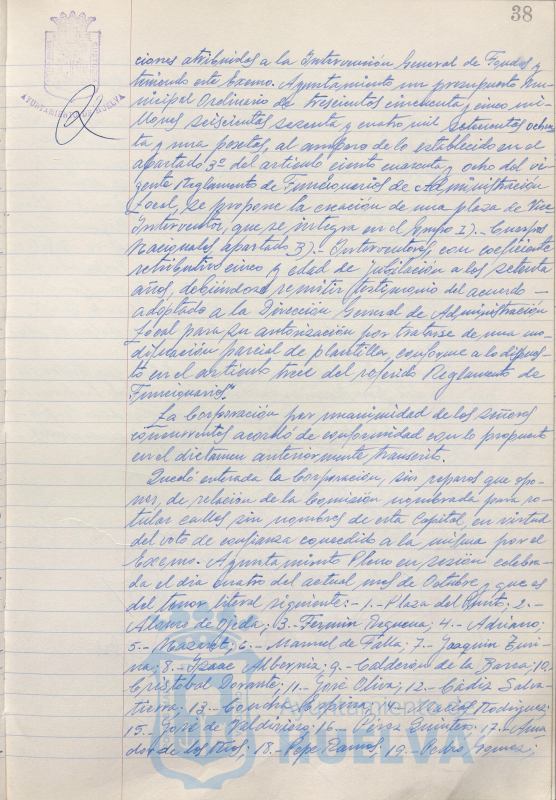 38
AYUNTAMIENTO DE HUELVA
ciones atribuidas a la Intervención General de Fondos y
teniendo este Excmo. Ayuntamiento un presupuesto Mu-
nicipal Ordinario de trescientos cincuenta y cinco mi-
llones seiscientas sesenta y cuatro mil setecientas ochen-
ta y una pesetas, al amparo de lo establecido en el
apartado 3º del artículo ciento cuarenta y ocho del vi-
gente Reglamento de Funcionarios de Administración
Local, se propone la creación de una plaza de Vice
Interventor, que se integra en el Grupo I).- Cuerpos
Nacionales apartado 3).- Interventores, con coeficiente
retributivo cinco y edad de jubilación a los setenta
años, debiéndose remitir testimonio del acuerdo -
adoptado a la Dirección General de Administración
Local para su autorización por tratarse de una mo-
dificación parcial de plantilla, conforme a lo dispues-
to en el artículo trece del referido Reglamento de
Funcionarios".
La Corporación por unanimidad de los señores
concurrentes acordó de conformidad con lo propuesto
en el dictamen anteriormente transcrito.
Quedó enterada la Corporación, sin reparos que opo-
ner, de relación de la Comisión nombrada para ro-
tular calles sin nombres de esta Capital, en virtud
del voto de confianza concedido a la misma por el
Excmo. Ayuntamiento Pleno en sesión celebra-
da el día cuatro del actual mes de Octubre, y que es
del tenor literal siguiente:- 1.- Plaza del Punto; 2.-
Alonso de Ojeda; 3.- Fermín Requena; 4.- Adriano;
5.- Mozart; 6.- Manuel de Falla; 7.- Joaquín Turi-
na; 8.- Isaac Albéniz; 9.- Calderón de la Barca; 10.
Cristóbal Dorante; 11.- José Oliva; 12.- Cádiz Salva-
tierra. 13.- Concha Espina; 14.- Macías Rodríguez;
15.- José de Valdivieso; 16.- Pérez Quintero. 17.- Ama-
dor de los Ríos; 18.- Pepe Ramos; 19.- Pedro
HUELVA